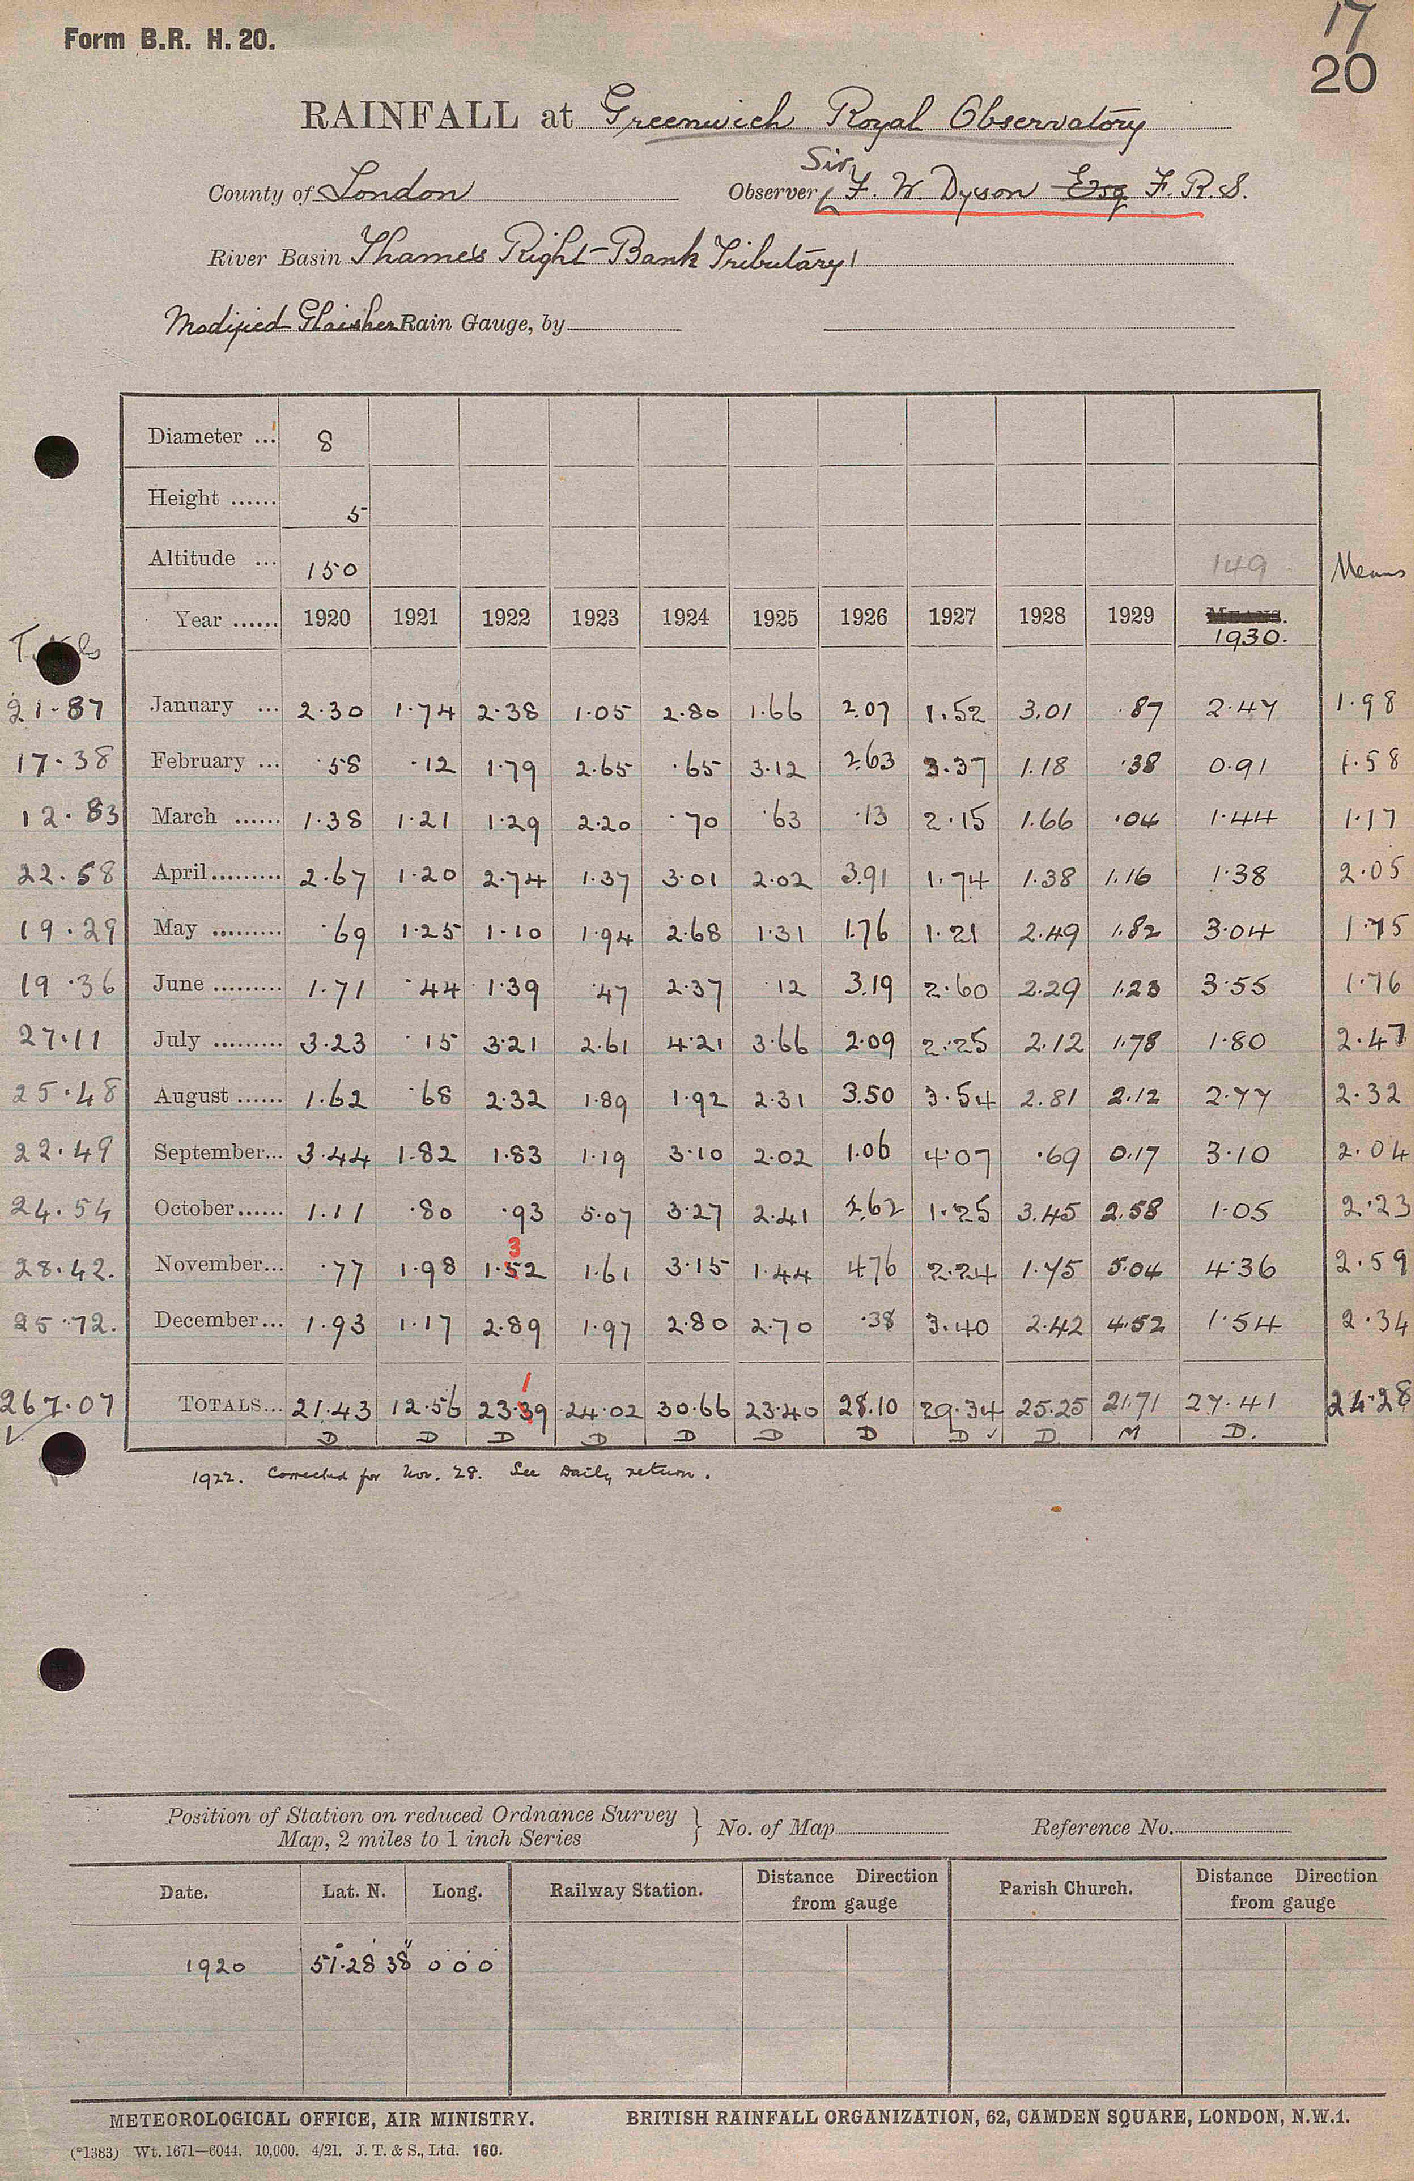 Form B.R. H. 20.
17
20
RAINFALL at Greenwich Royal Observatory
County of London Observer Sir F. W. Dyson Esq F. R. S.
River Basin Thames Right-Bank Tributary
Modified Glaisher Rain Gauge, by
Diameter ... 8
Height ...... 5
Altitude ... 150 149 Means
Year ...... 1920 1921 1922 1923 1924 1925 1926 1927 1928 1929 MEANS. 1930.
21.87 January ... 2.30 1.74 2.38 1.05 2.80 1.66 2.07 1.52 3.01 .87 2.47 1.98
17.38 February ... .58 .12 1.79 2.65 .65 3.12 2.63 3.37 1.18 .38 0.91 1.58
12.83 March ...... 1.38 1.21 1.29 2.20 .70 .63 .13 2.15 1.66 .04 1.44 1.17
22.58 April......... 2.67 1.20 2.74 1.37 3.01 2.02 3.91 1.74 1.38 1.16 1.38 2.05
19.29 May ......... .69 1.25 1.10 1.94 2.68 1.31 1.76 1.21 2.49 1.82 3.04 1.75
19.36 June ......... 1.71 .44 1.39 .47 2.37 .12 3.19 2.60 2.29 1.23 3.55 1.76
27.11 July ......... 3.23 .15 3.21 2.61 4.21 3.66 2.09 2.25 2.12 1.78 1.80 2.47
25.48 August ...... 1.62 .68 2.32 1.89 1.92 2.31 3.50 3.54 2.81 2.12 2.77 2.32
22.49 September... 3.44 1.82 1.83 1.19 3.10 2.02 1.06 4.07 .69 0.17 3.10 2.04
24.54 October...... 1.11 .80 .93 5.07 3.27 2.41 2.62 1.25 3.45 2.58 1.05 2.23
3
28.42. November... .77 1.98 1.52 1.61 3.15 1.44 4.76 2.24 1.75 5.04 4.36 2.59
25.72. December... 1.93 1.17 2.89 1.97 2.80 2.70 .38 3.40 2.42 4.52 1.54 2.34
1
267.07 TOTALS... 21.43 12.56 23.39 24.02 30.66 23.40 28.10 29.34 25.25 21.71 27.41 24.28
D D D D D D D D ✓ D M D.
1922. Corrected for Nov. 28. See Daily return.
Position of Station on reduced Ordnance Survey
Map, 2 miles to 1 inch Series } No. of Map Reference No.
Date. Lat. N. Long. Railway Station. Distance Direction from gauge Parish Church. Distance Direction from gauge
1920 51° 28' 38" 0° 0' 0"
METEOROLOGICAL OFFICE, AIR MINISTRY. BRITISH RAINFALL ORGANIZATION, 62, CAMDEN SQUARE, LONDON, N.W.1.
(*1383) Wt. 1671—6044. 10,000. 4/21. J. T. & S., Ltd. 160.